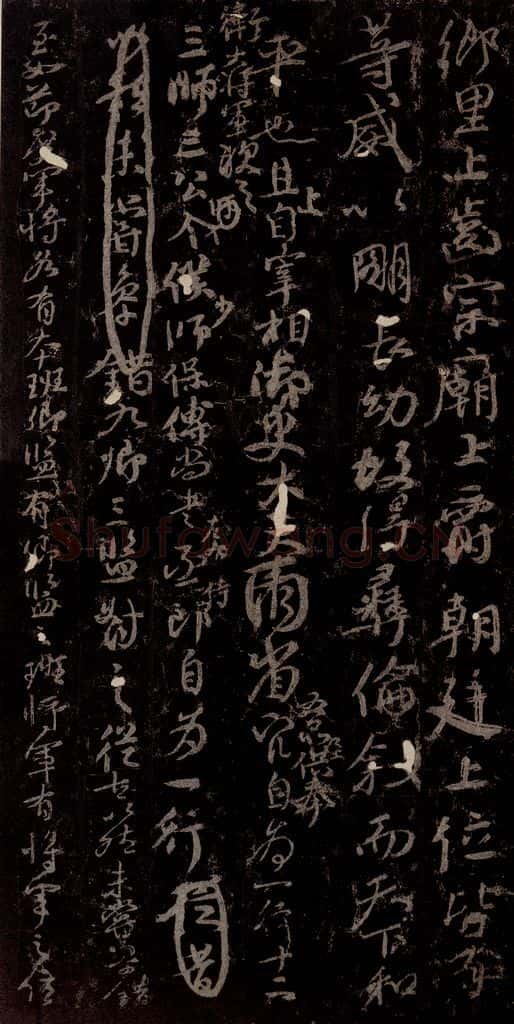 鄉里上齒宗廟上爵朝廷上位皆有
等威以明長幼故得彝倫敘而天下和
平也且上自宰相御史大夫兩省五品以上供奉官自為一行十二
衛大將軍次之
三師三公令僕少師保傅尚書左右丞侍郎自為一行
未嘗參錯九卿三監對之從古以然未嘗參錯
至如節度軍將各有本班卿監有卿監之班將軍有將軍之位
Shufawang.CN